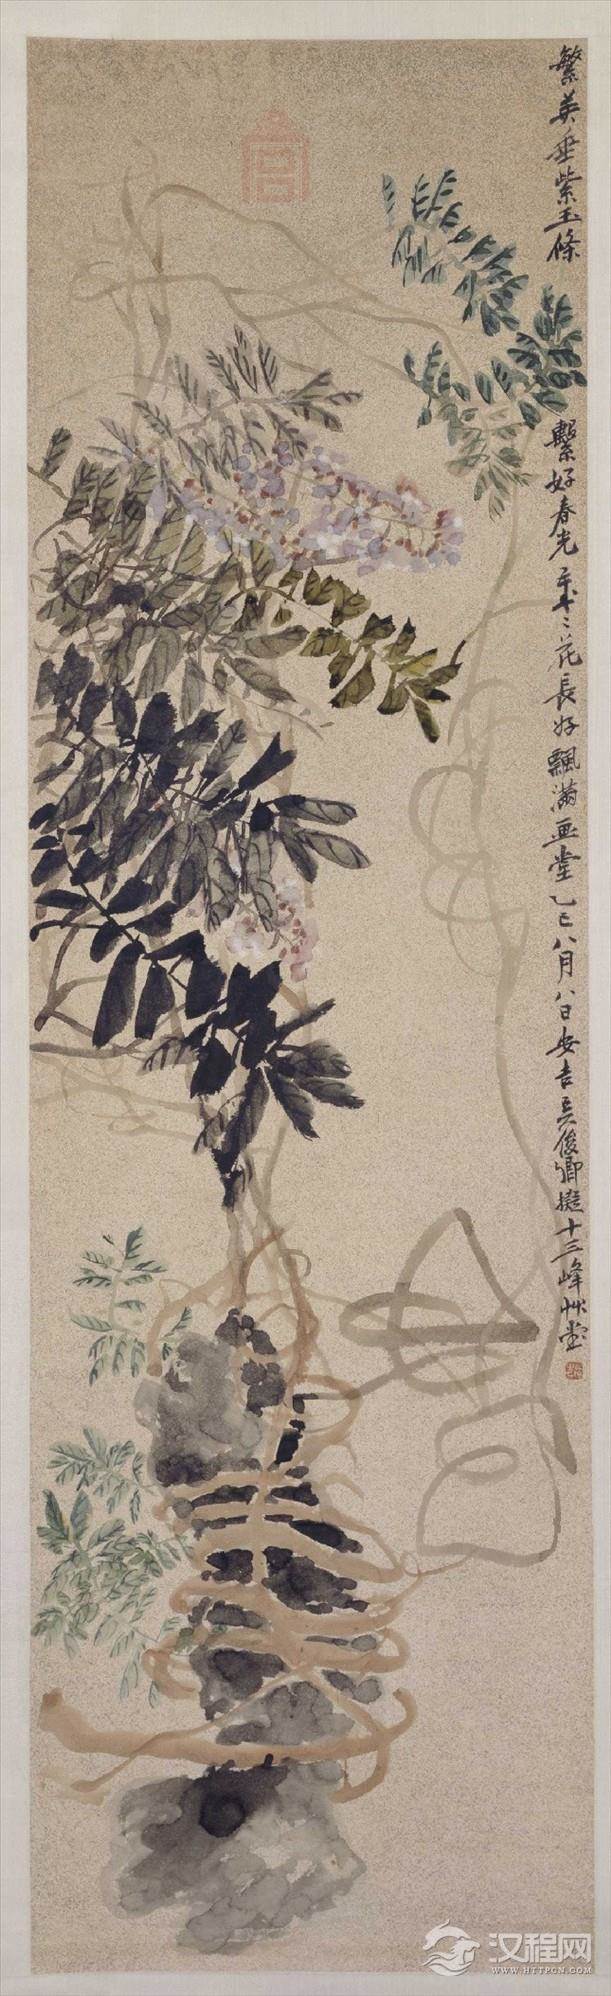 繁英垂紫玉條
繫好春光年〻花長好飄滿画堂乙巳八月八日安吉吳俊卿擬十三峰艸堂
汉程网
WWW.HTTPCN.COM